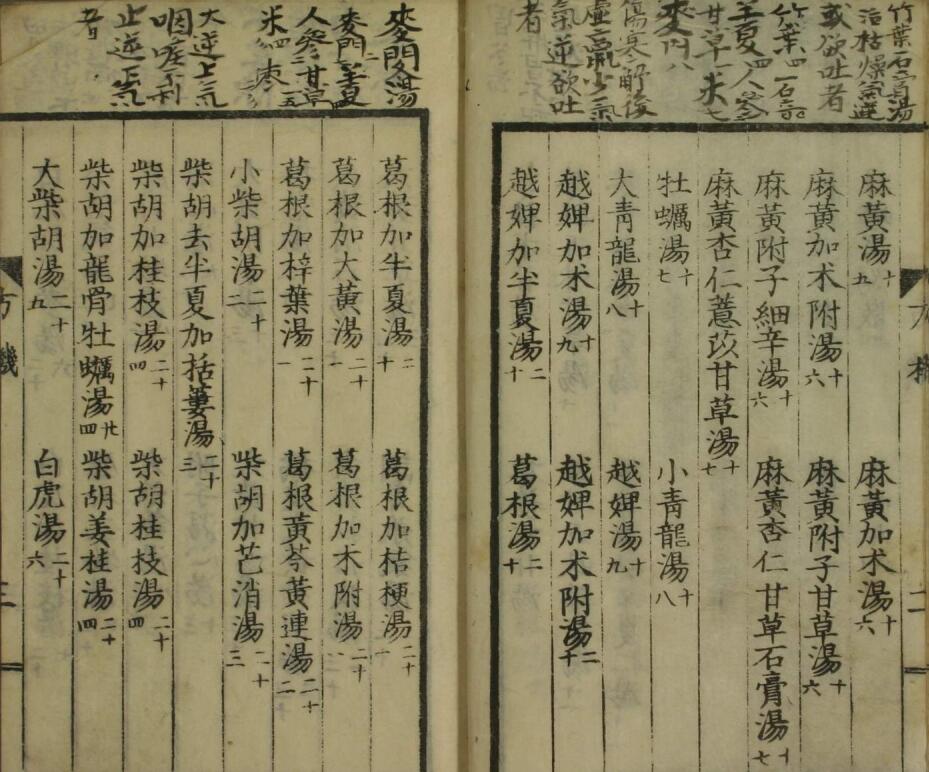 竹葉石膏湯
治枯燥氣逆
或欲吐者
竹葉四 石膏
半夏四 人參
甘草一 米七
麥門八
傷寒解後
虛羸少氣
氣逆欲吐
者
方機 二
麻黃湯十五 麻黃加术湯十六
麻黃加术附湯十六 麻黃附子甘草湯十六
麻黃附子細辛湯十六 麻黃杏仁甘草石膏湯十七
麻黃杏仁薏苡甘草湯十七
牡蠣湯十七 小青龍湯十八
大青龍湯十八 越婢湯十九
越婢加术湯十九 越婢加术附湯二十
越婢加半夏湯二十 葛根湯二十
麥門湯
麥門 半夏
人參二 甘草
米四 枣
大逆上氣
咽喉不利
止逆下氣
者
葛根加半夏湯二十 葛根加桔梗湯二十一
葛根加大黃湯二十一 葛根加术附湯二十一
葛根加梓葉湯二十一 葛根黃芩黃連湯二十二
小柴胡湯二十二 柴胡加芒消湯二十三
柴胡去半夏加括蔞湯二十三
柴胡加桂枝湯二十四 柴胡桂枝湯二十四
柴胡加龍骨牡蠣湯廿四 柴胡姜桂湯二十四
大柴胡湯二十五 白虎湯二十六
方機 三